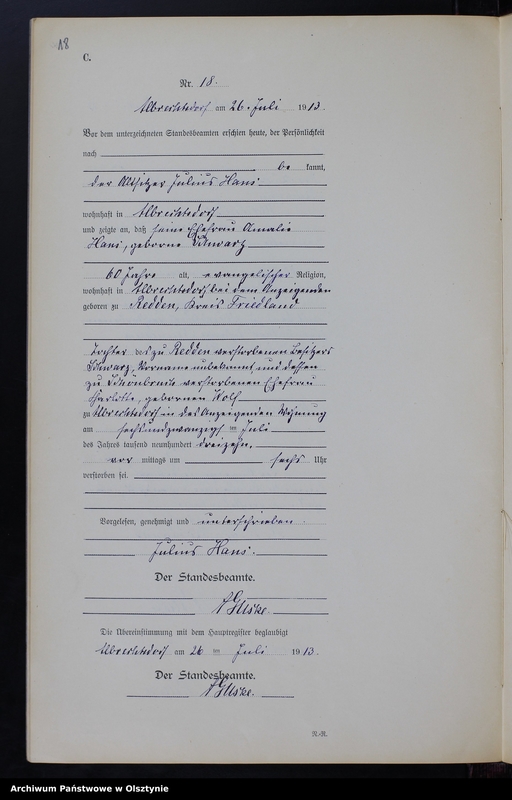 18
C.
Nr. 18.
Albrechtsdorf am 26. Juli 1913.
Vor dem unterzeichneten Standesbeamten erschien heute, der Persönlichkeit
nach
be kannt,
der Altsitzer Julius Hans
wohnhaft in Albrechtsdorf
und zeigte an, daß seine Ehefrau Amalie
Hans, geborne Schwarz
60 Jahre alt, evangelischer Religion,
wohnhaft in Albrechtsdorf bei dem Anzeigenden
geboren zu Redden, Kreis Friedland
Tochter des zu Redden verstorbenen Besitzers
Schwarz, Vorname unbekannt, und dessen
zu verstorbenen Ehefrau
Charlotte, gebornen Wolf
zu Albrechtsdorf in des Anzeigenden Wohnung
am sechsundzwanzigsten Juli
des Jahres tausend neunhundert dreizehn,
vor mittags um sechs Uhr
verstorben sei.
Vorgelesen, genehmigt und unterschrieben.
Julius Hans.
Der Standesbeamte.
Die Übereinstimmung mit dem Hauptregister beglaubigt
Albrechtsdorf am 26 ten Juli 1913.
Der Standesbeamte.
R.-R.
Archiwum Państwowe w Olsztynie